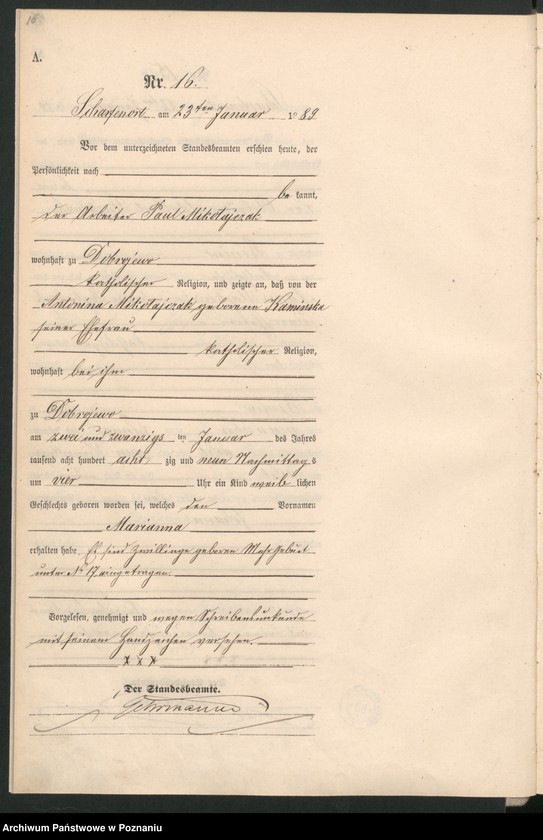 16
A.
Nr. 16.
Scharfenort am 23ten Januar 1889
Vor dem unterzeichneten Standesbeamten erschien heute, der
Persönlichkeit nach
be kannt,
der Arbeiter Paul Mikołajczak
wohnhaft zu Dobrojewo
katholischer Religion, und zeigte an, daß von der
Antonina Mikołajczak geborene Kaminska
seiner Ehefrau
katholischer Religion,
wohnhaft bei ihm
zu Dobrojewo
am zwei und zwanzigs ten Januar des Jahres
tausend acht hundert acht zig und neun Nachmittags
um vier Uhr ein Kind weib lichen
Geschlechts geboren worden sei, welches den Vornamen
Marianna
erhalten habe. Es sind Zwillinge geboren
unter No 17 eingetragen.
Vorgelesen, genehmigt und wegen Schreibensunkunde
mit seinem Handzeichen versehen.
x x x
Der Standesbeamte.
Archiwum Państwowe w Poznaniu